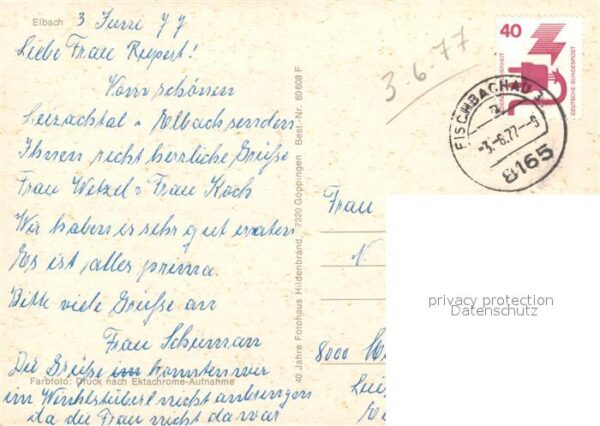 Elbach
3 Juni 77
Liebe Frau Ruppert!
Vom schönen
Leizachtal - Elbach senden
Ihnen recht herzliche Grüße
Frau Wetzel u Frau Koch
Wir haben es sehr gut
Es ist alles prima.
Bitte viele Grüße an
Frau Schuman
Die Grüße konnten wir
im nicht anbringen
da die Frau nicht da war
Farbfoto: Druck nach Ektachrome-Aufnahme
40 Jahre Fotohaus Hildenbrand, 7320 Göppingen Best.-Nr. 60608 F
3.-6.77
40
DEUTSCHE BUNDESPOST
FISCHBACHAU
-3.-6.77.-9
8165
Frau
8000
privacy protection
Datenschutz